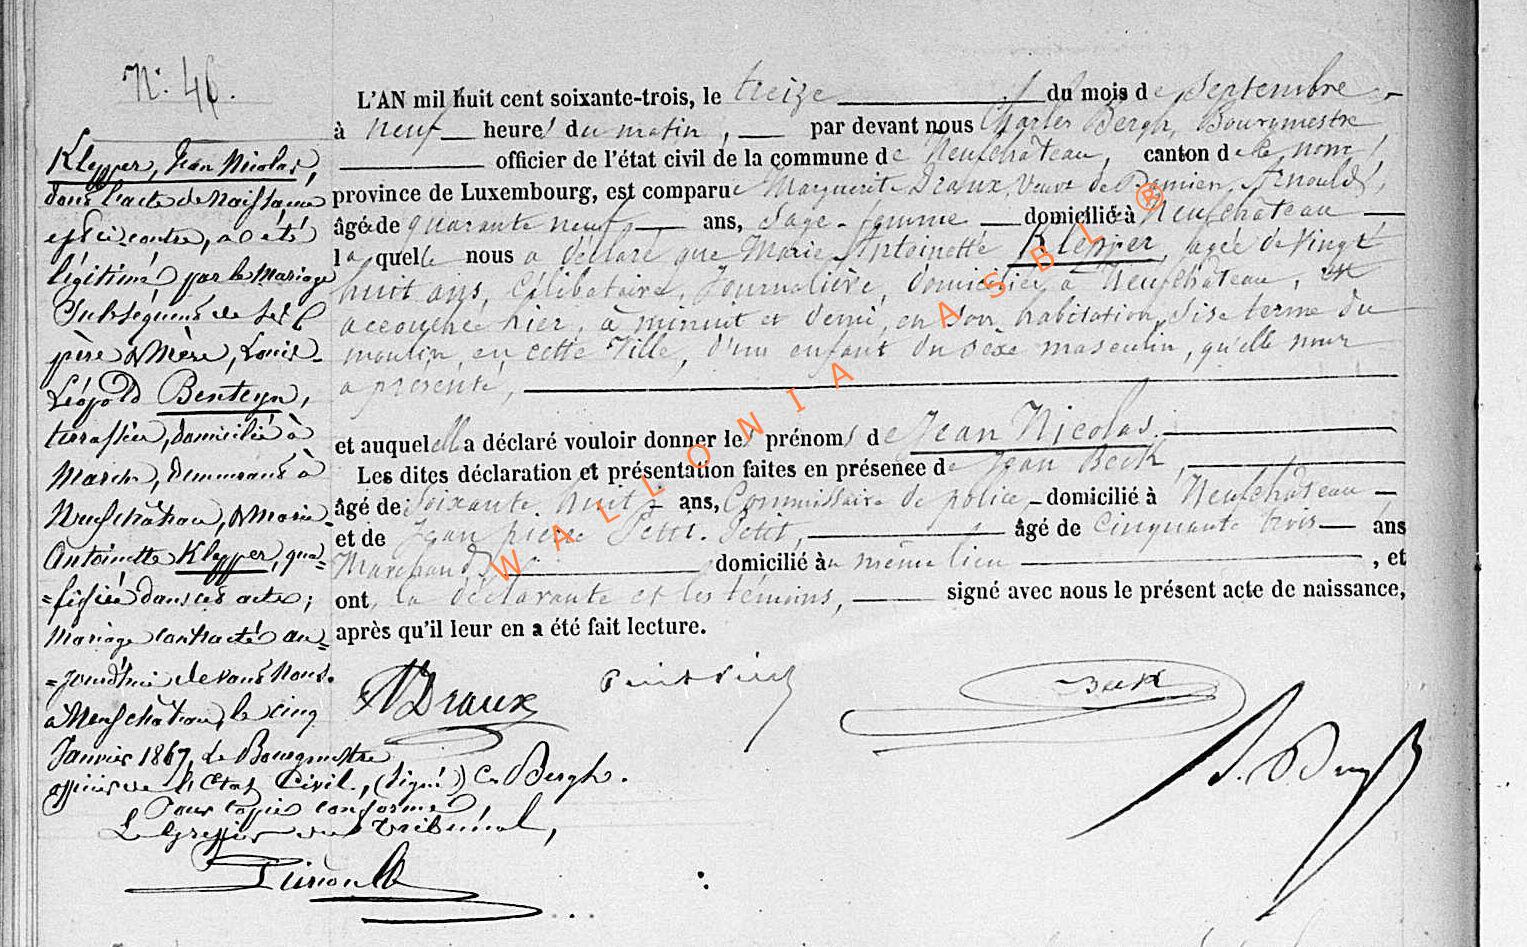 N.° 46.
Klepper, Jean Nicolas,
dont l'acte de Naissance
est ci contre, a été
légitimé par le Mariage
Subséquent de ses
père & Mère, Louis
Léopold Benteyn,
terrassier, domicilié à
Marche, demeurant à
Neufchâteau, & Marie
Antoinette Klepper, qua=
=lifiée dans cet acte;
Mariage contracté au=
=jourd'hui devant Nous.
a Neufchâteau, le cinq
Janvier 1867, Le Bourgmestre
officier de l'Etat Civil, (signé) Ch Bergh.
Pour copie conforme,
Le Greffier du tribunal,
L'AN mil huit cent soixante-trois, le treize du mois de Septembre
à neuf heures du matin, par devant nous Charles Bergh, Bourgmestre,
officier de l'état civil de la commune de Neufchâteau, canton de ce nom,
province de Luxembourg, est comparue Marguerite Draux, Veuve de Damien Arnould,
âgée de quarante neuf ans, Sage-femme domiciliée à Neufchâteau
laquelle nous a déclaré que Marie Antoinette Klepper, âgée de vingt
huit ans, Célibataire, Journalière, domiciliée à Neufchâteau, est
accouchée hier, à minuit et demi, en son habitation, sise terme du
moulin, en cette Ville, d'un enfant du sexe masculin, qu'elle nous
a présenté,
et auquel elle a déclaré vouloir donner les prénoms de Jean Nicolas.
Les dites déclaration et présentation faites en présence de Jean Beck,
âgé de Soixante huit ans, Commissaire de police, domicilié à Neufchâteau
et de Jean pierre Petit. Petit, âgé de Cinquante trois ans
Marchand, domicilié au même lieu, et
ont, la déclarante et les témoins, signé avec nous le présent acte de naissance,
après qu'il leur en a été fait lecture.
M Draux
Beck
WALLONIA ASBL ®